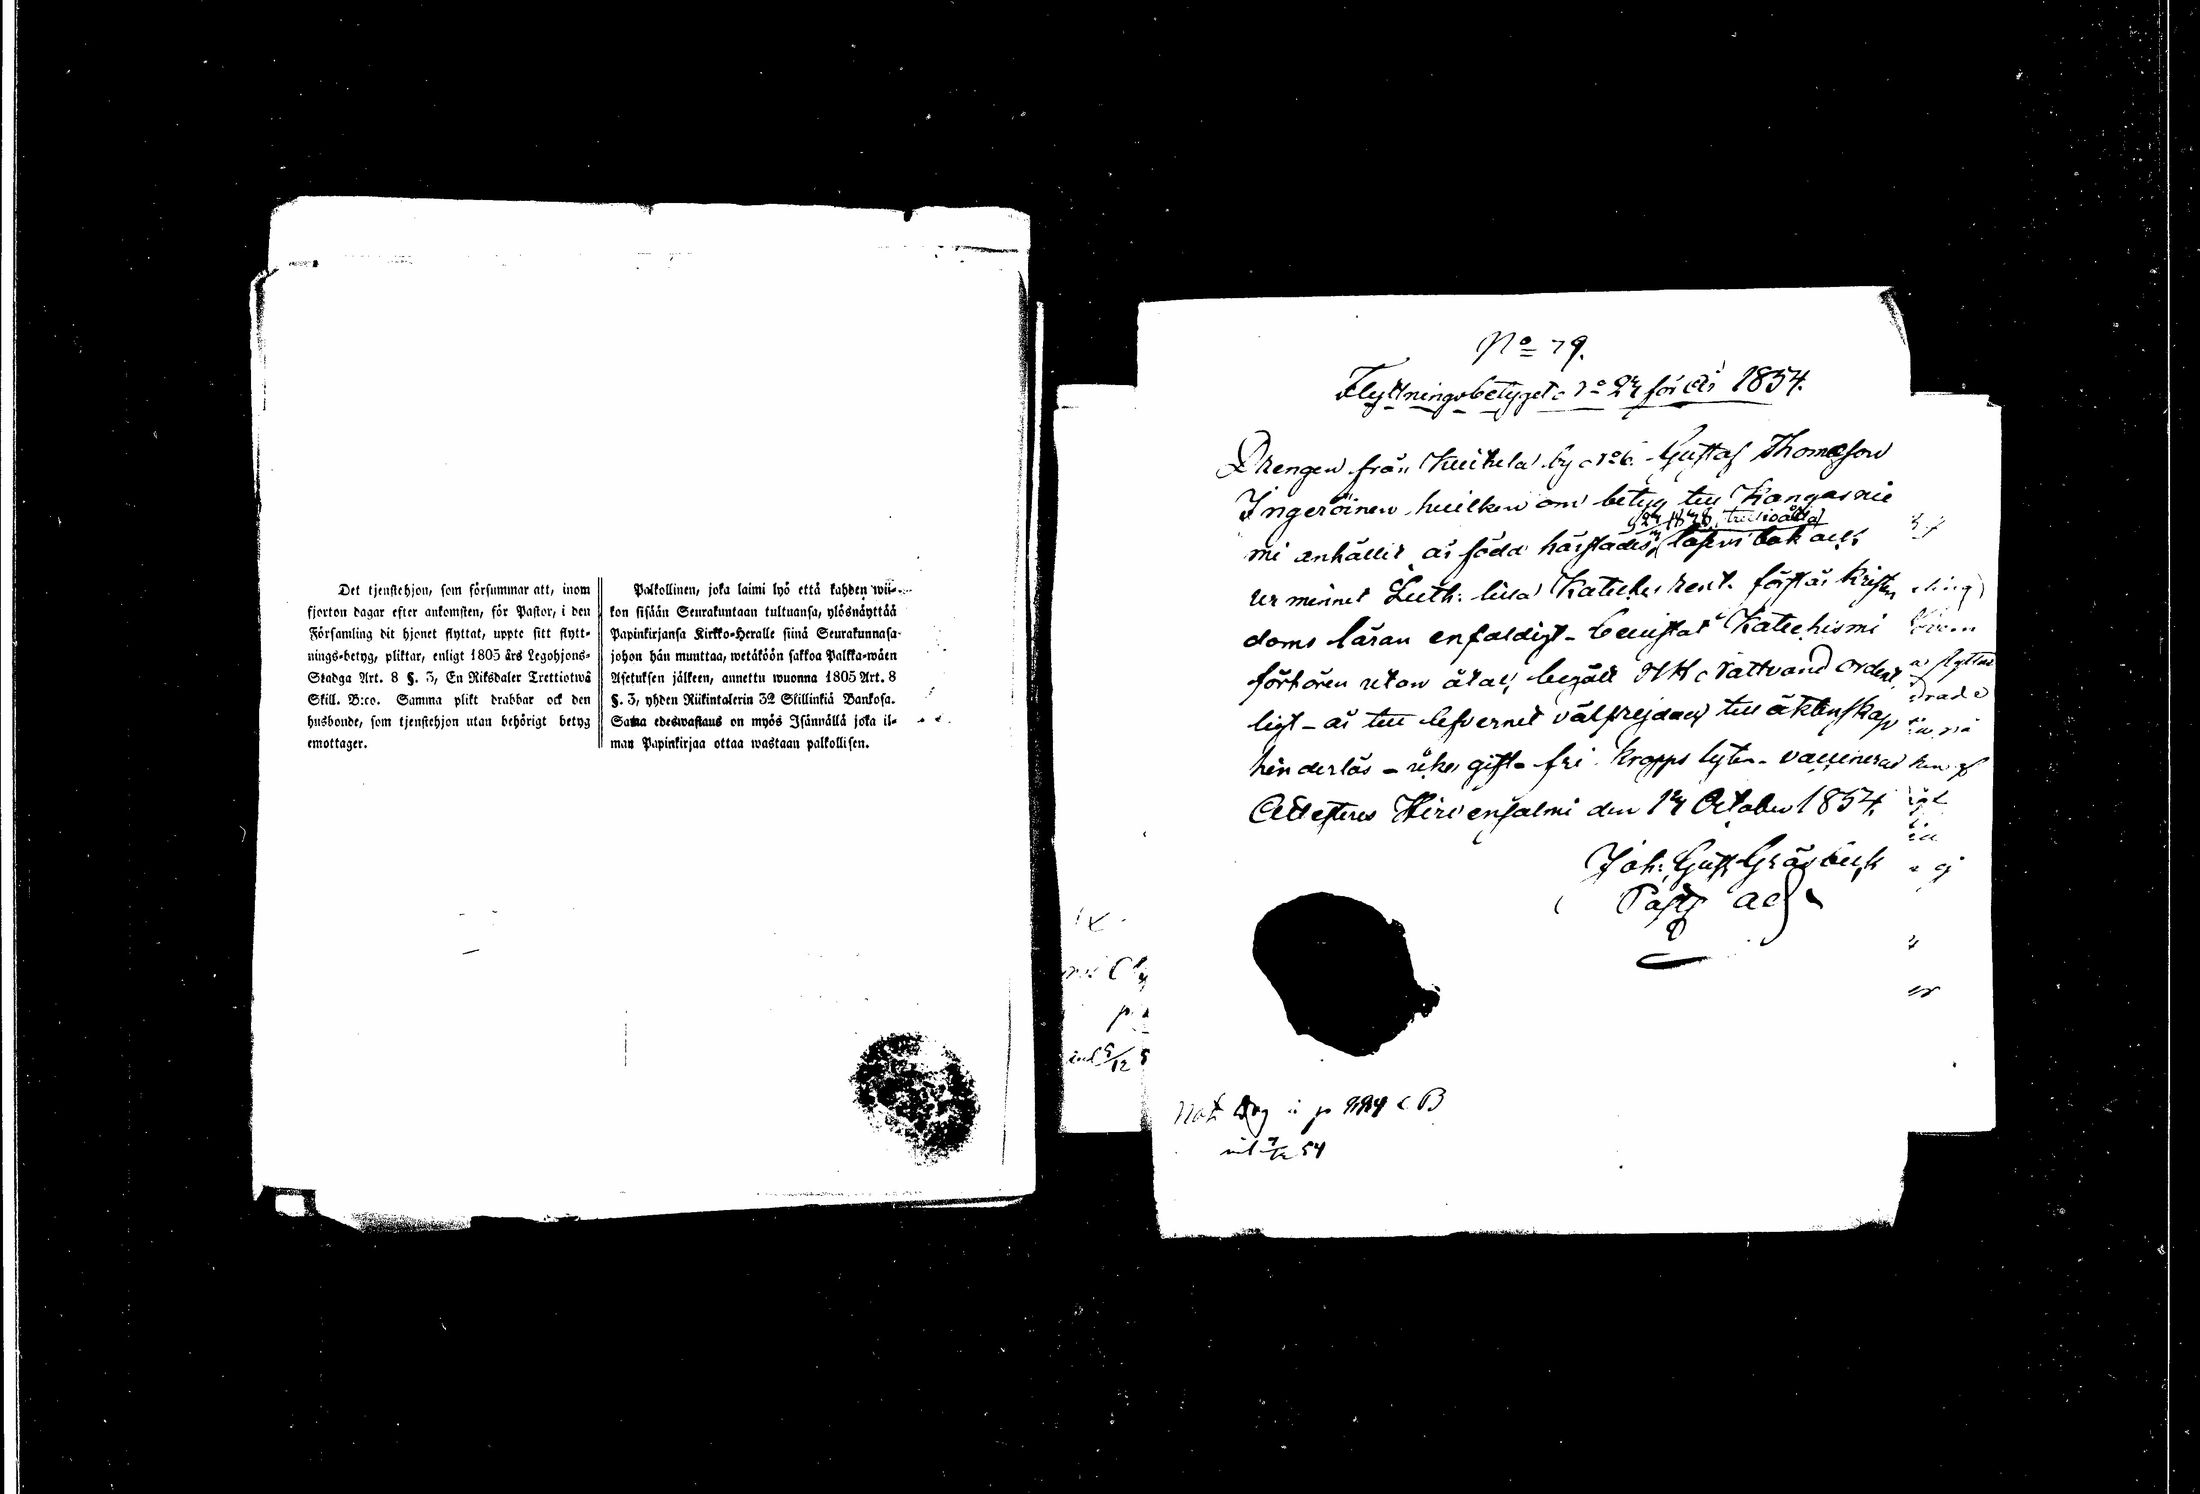 Det tjenstehjon, som försummar att, inom
fjorton dagar efter ankomsten, för Pastor, i den
Församling dit hjonet flyttat, uppte sitt flytt-
nings-betyg, pliktar, enligt 1805 års Legohjons-
Stadga Art. 8 §. 3, En Riksdaler Trettiotwå
Skill. B:co. Samma plikt drabbar ock den
husbonde, som tjenstehjon utan behörigt betyg
emottager.
Palkollinen, joka laimi lyö että kahden wii-
kon sisään Seurakuntaan tultuansa, ylösnäyttää
Papinkirjansa Kirkko-Heralle siinä Seurakunnasa
johon hän munttaa, wetäköön sakkoa Palkka-wäen
Asetuksen jälkeen, annettu wuonna 1805 Art. 8
§. 3, yhden Riikintalerin 32 Skillinkiä Bankosa.
Sama edeswastaus on myös Isännällä joka il-
man Papinkirjaa ottaa wastaan palkollisen.
No 79.
Flyttningsbetyget No 24 för År 1854.
Drengen från by No 6. Gustaf Thomasson
Ingeröinen hvilken om betyg till Kangasnie
1828
mi anhåller är född härstädes, läser i bok och
ur minnet Luth: lilla Kateches rent. förstår Kristen
doms läran enfaldigt - bevistat Katechismi
förhören utan åtal, begått HHs Nattvard ordent
ligt - är till lefvernet välfrejdad till äktenskap
hinderlös - gift - fri kropps lyten - vaccinerad
Attesteras Hirvensalmi den 14 October 1854.
Joh: Gust: Gråsbeck
Past: adj:
Not p B
54